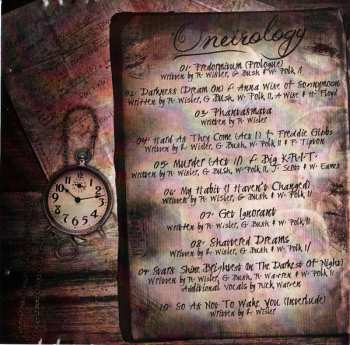 Oneirology
01- Predormitum (Prologue)
Written by R. Wisler, G. Bush & W. Polk II
02- Darkness (Dream On) f/ Anna Wise of Sonnymoon
Written by R. Wisler, G. Bush, W. Polk II, A. Wise & H. Floyd
03- Phantasmata
Written by R. Wisler
04- Hard As They Come (Act I) f/ Freddie Gibbs
Written by R. Wisler, G. Bush, W. Polk II & F. Tipton
05- Murder (Act II) f/ Big K.R.I.T.
Written by R. Wisler, G. Bush, W. Polk II, J. Scott & W. Eanes
06- My Habit (I Haven't Changed)
Written by R. Wisler, G. Bush & W. Polk II
07- Get Ignorant
Written by R. Wisler, G. Bush & W. Polk II
08- Shattered Dreams
Written by R. Wisler, G. Bush & W. Polk II
09- Stars Shine Brightest (In The Darkest Of Night)
Written by R. Wisler, G. Bush, R. Warren & W. Polk II
Additional vocals by Rick Warren
10- So As Not To Wake You (Interlude)
Written by R. Wisler